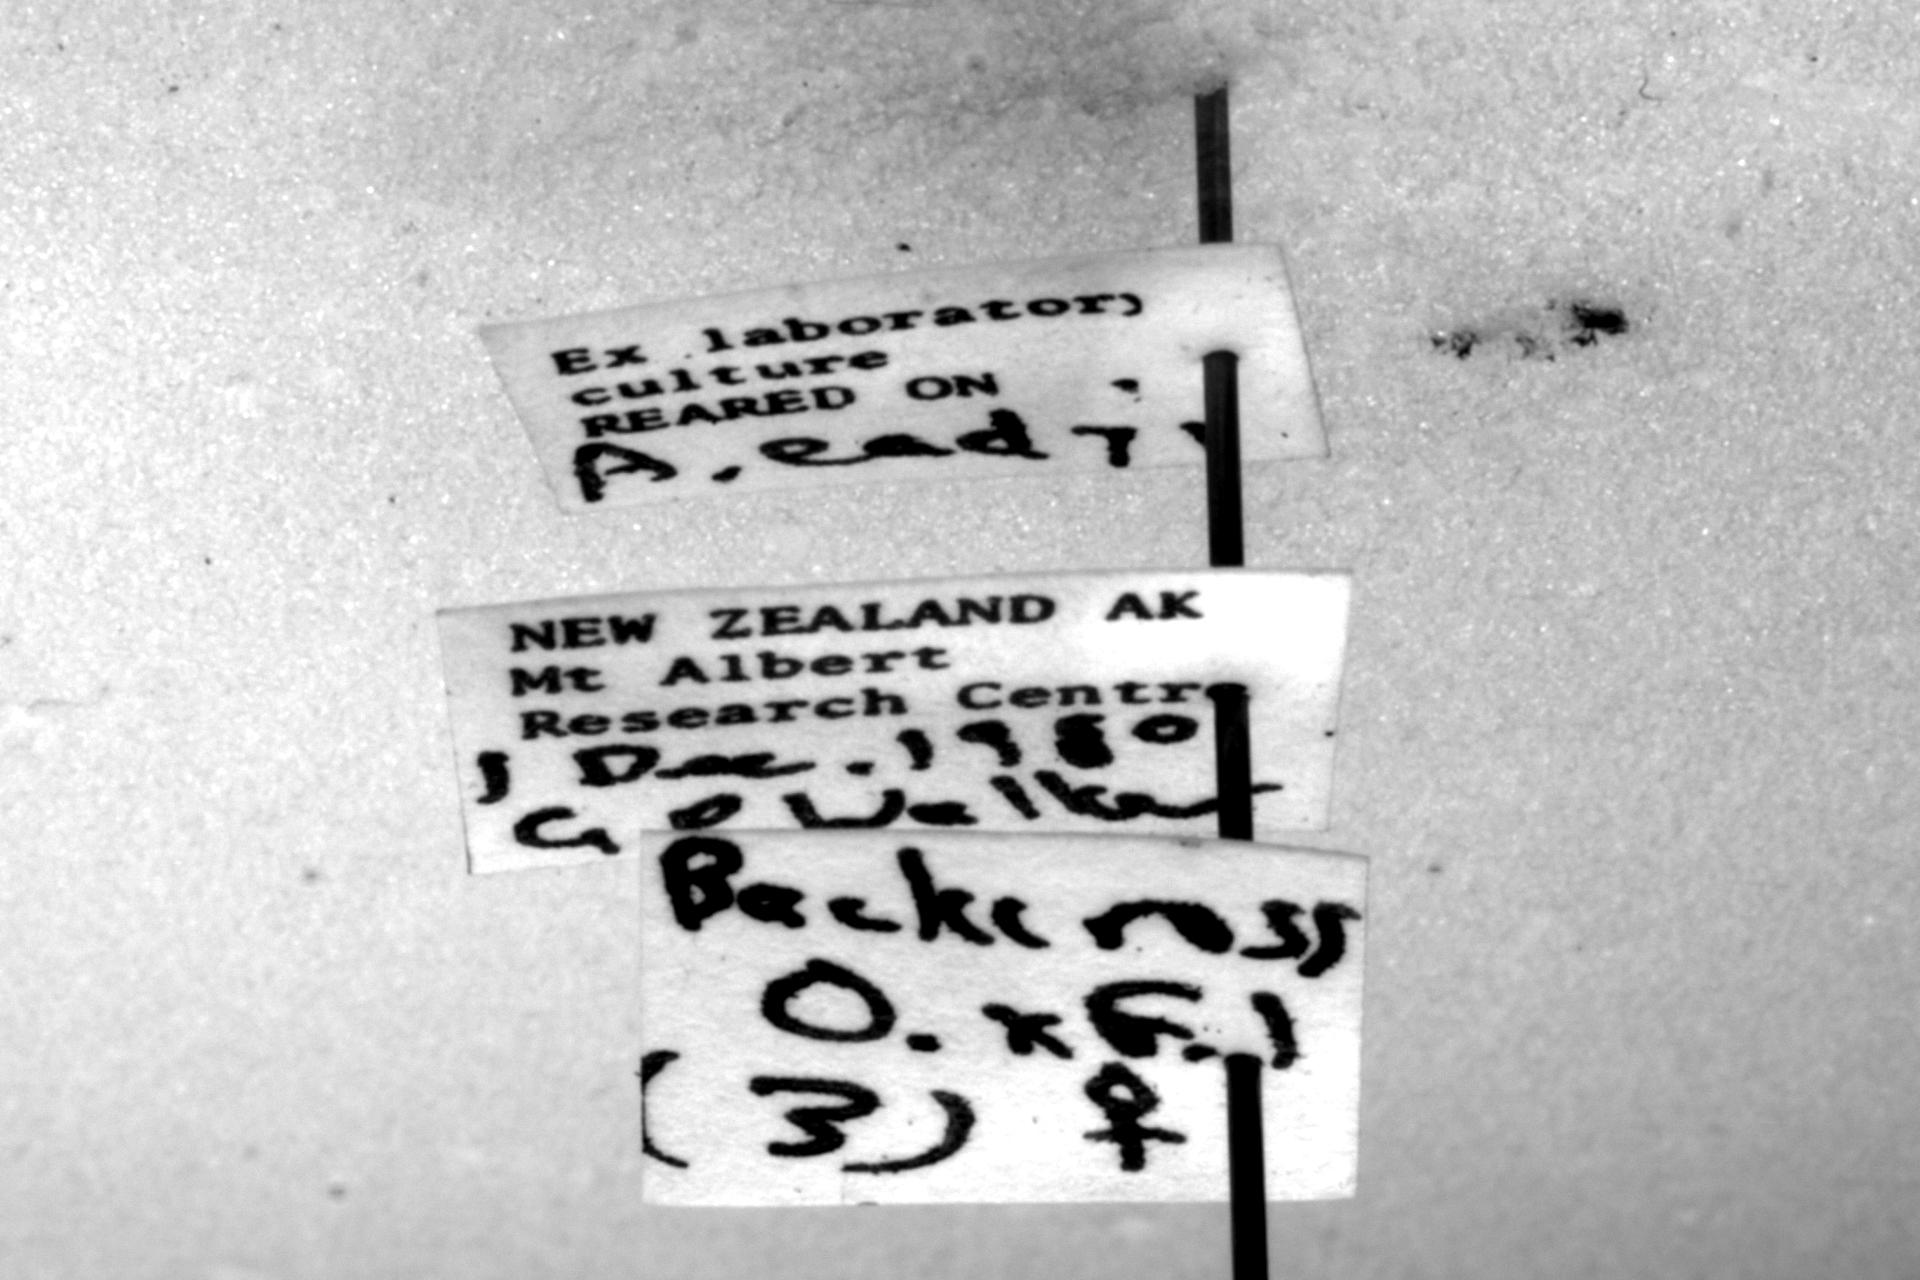 Ex laboratory
culture
REARED ON
A.
NEW ZEALAND AK
Mt Albert
Research Centre
Dec. 1980
G P Walker
Backcross
O. x G.1
(3) ♀